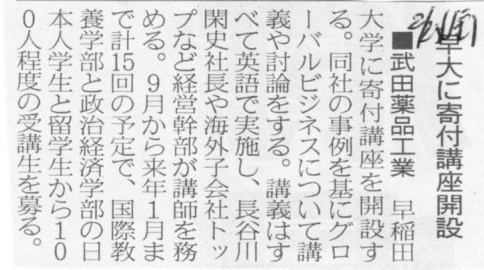 早大に寄付講座開設
■武田薬品工業　早稲田
大学に寄付講座を開設す
る。同社の事例を基にグロ
ーバルビジネスについて講
義や討論をする。講義はす
べて英語で実施し、長谷川
閑史社長や海外子会社トッ
プなど経営幹部が講師を務
める。９月から来年１月ま
で計15回の予定で、国際教
養学部と政治経済学部の日
本人学生と留学生から１０
０人程度の受講生を募る。